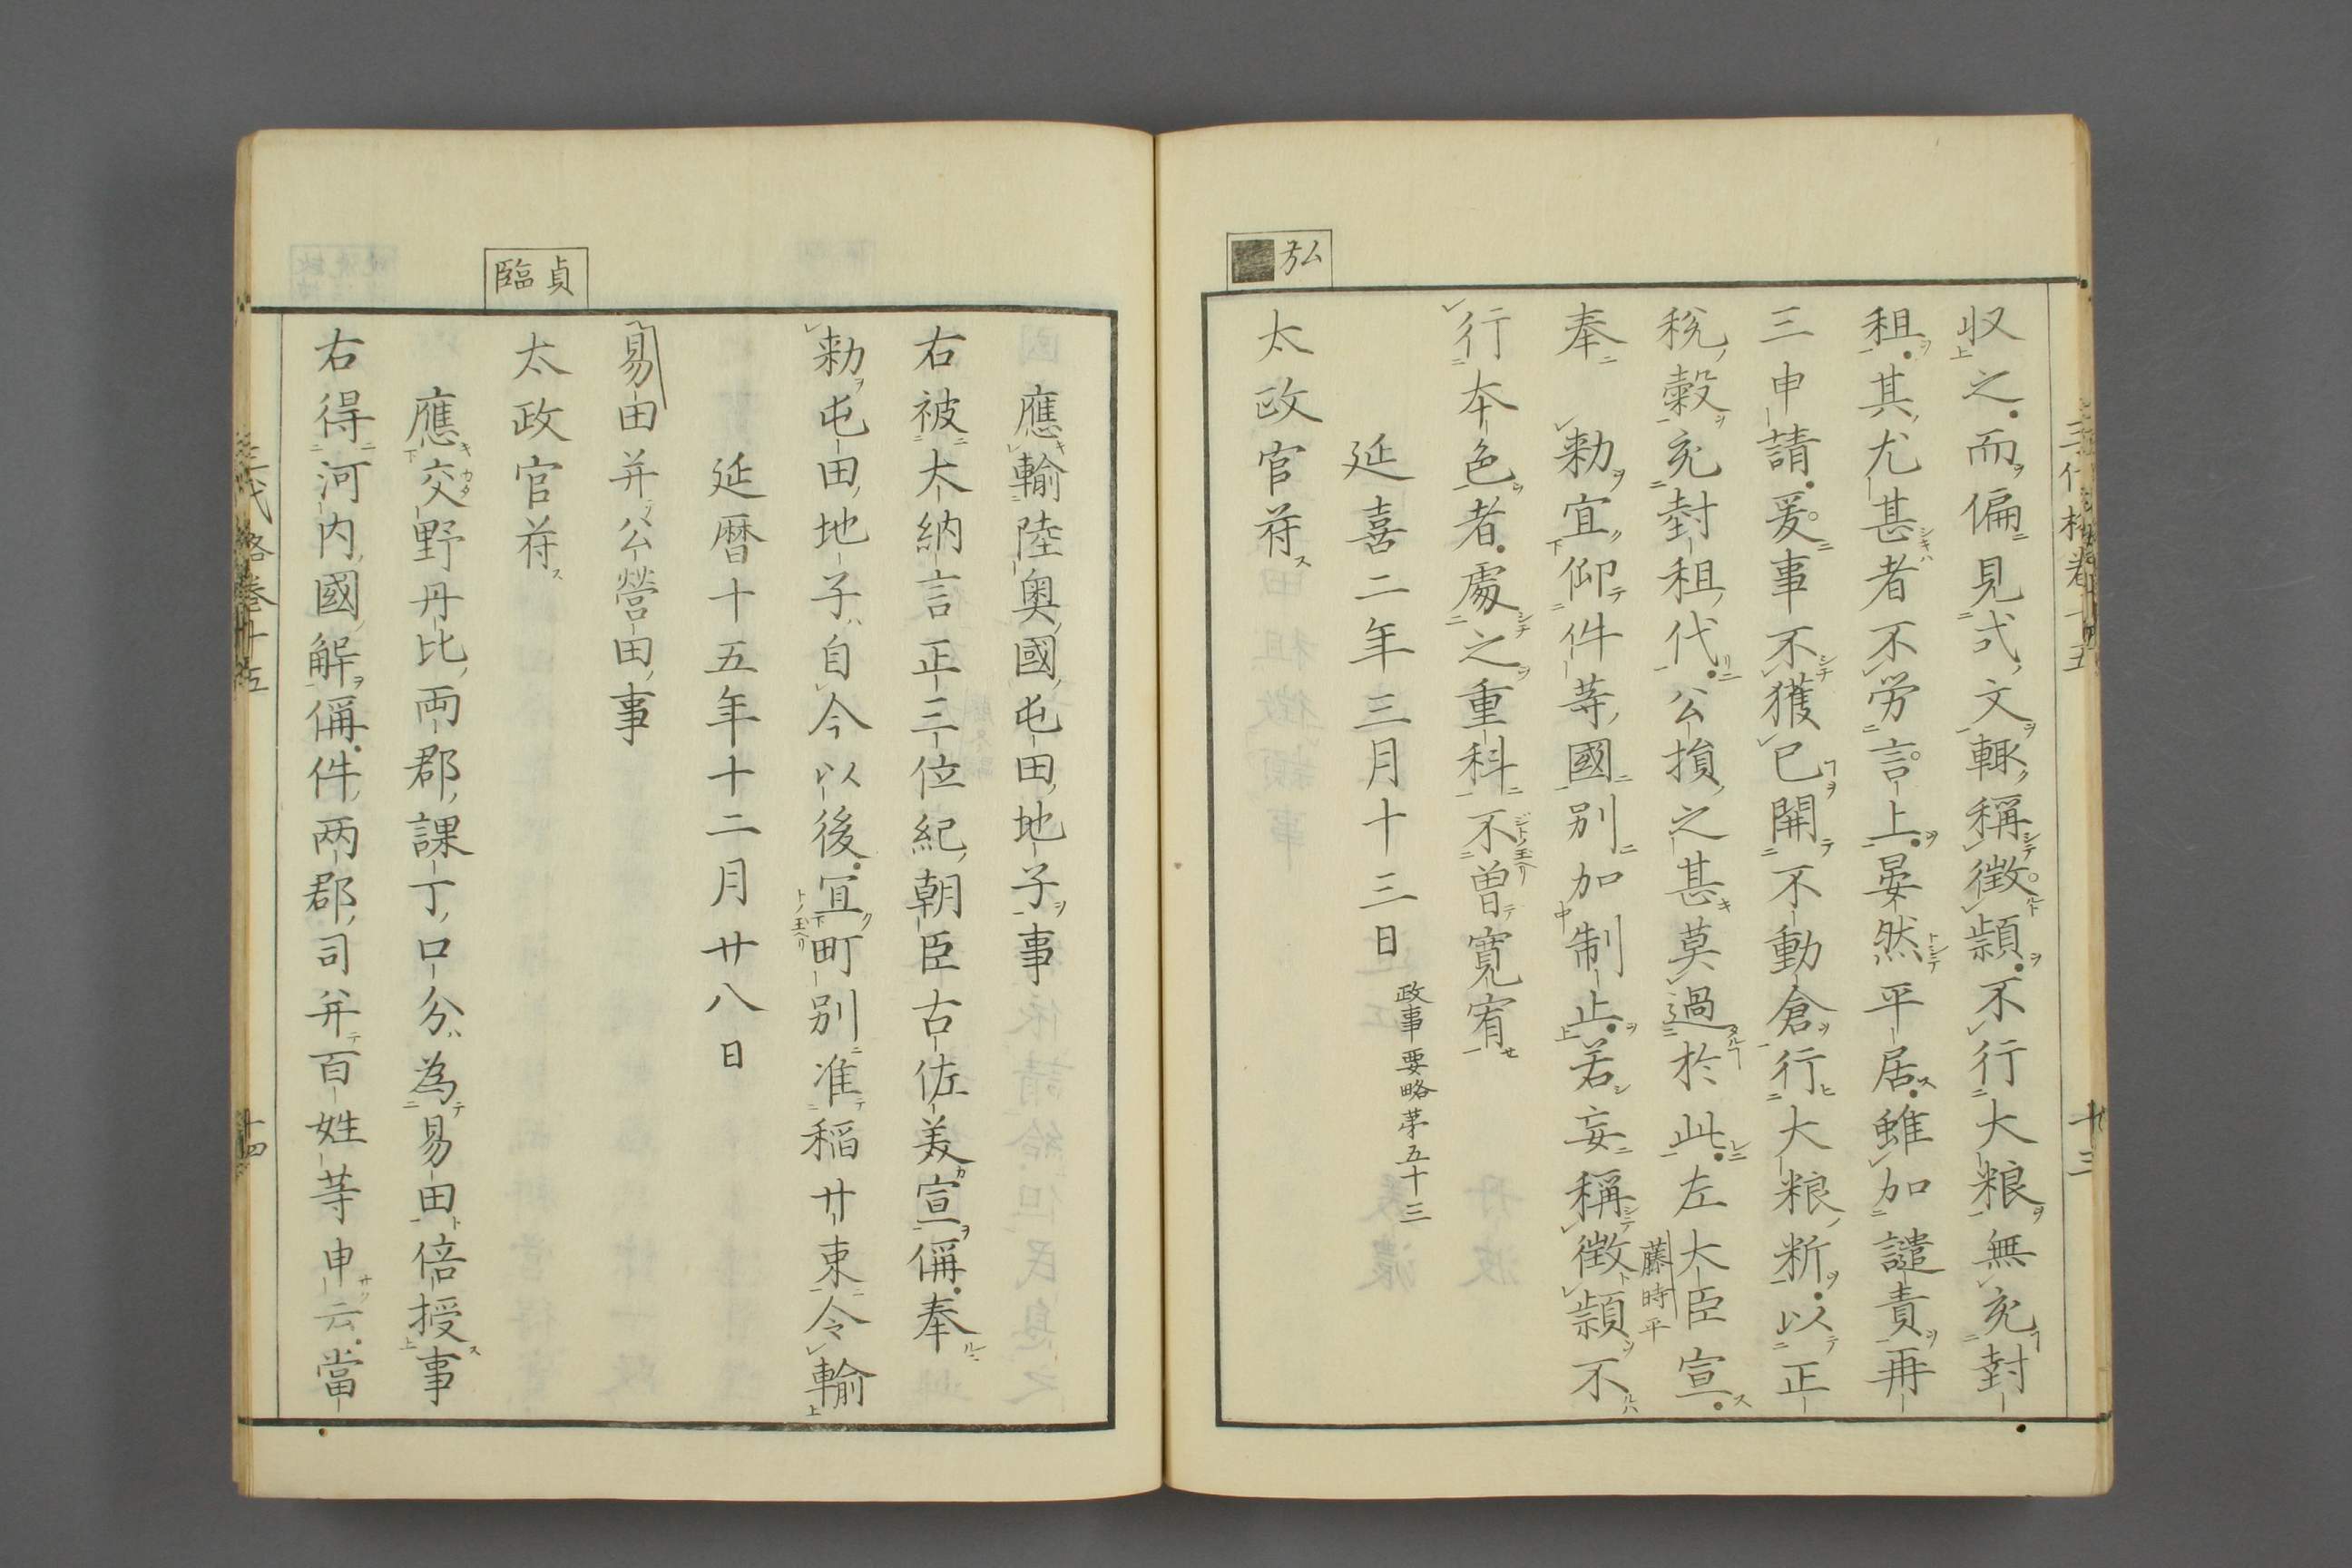 収之而偏見式文輙稱徴頴不行大粮無充封
租其尤甚者不労言上晏然平居雖加譴責再
三申請爰事不獲已開不動倉行大粮断以正
税穀充封租代公損之甚莫過於此左大臣宣
藤時平
奉　勅宜仰件等國別加制止若妄稱徴頴不
行本色者處之重科不曽寛宥
延喜二年三月十三日
政事要略第五十三
弘
太政官符
應輸陸奥國屯田地子事
右被大納言正三位紀朝臣古佐美宣偁奉
勅屯田地子自今以後冝町別准稲廿束令輸
延暦十五年十二月廿八日
易田并公營田事
貞臨
太政官符
應交野丹比両郡課丁口分為易田倍授事
右得河内國解偁件两郡司并百姓等申云當